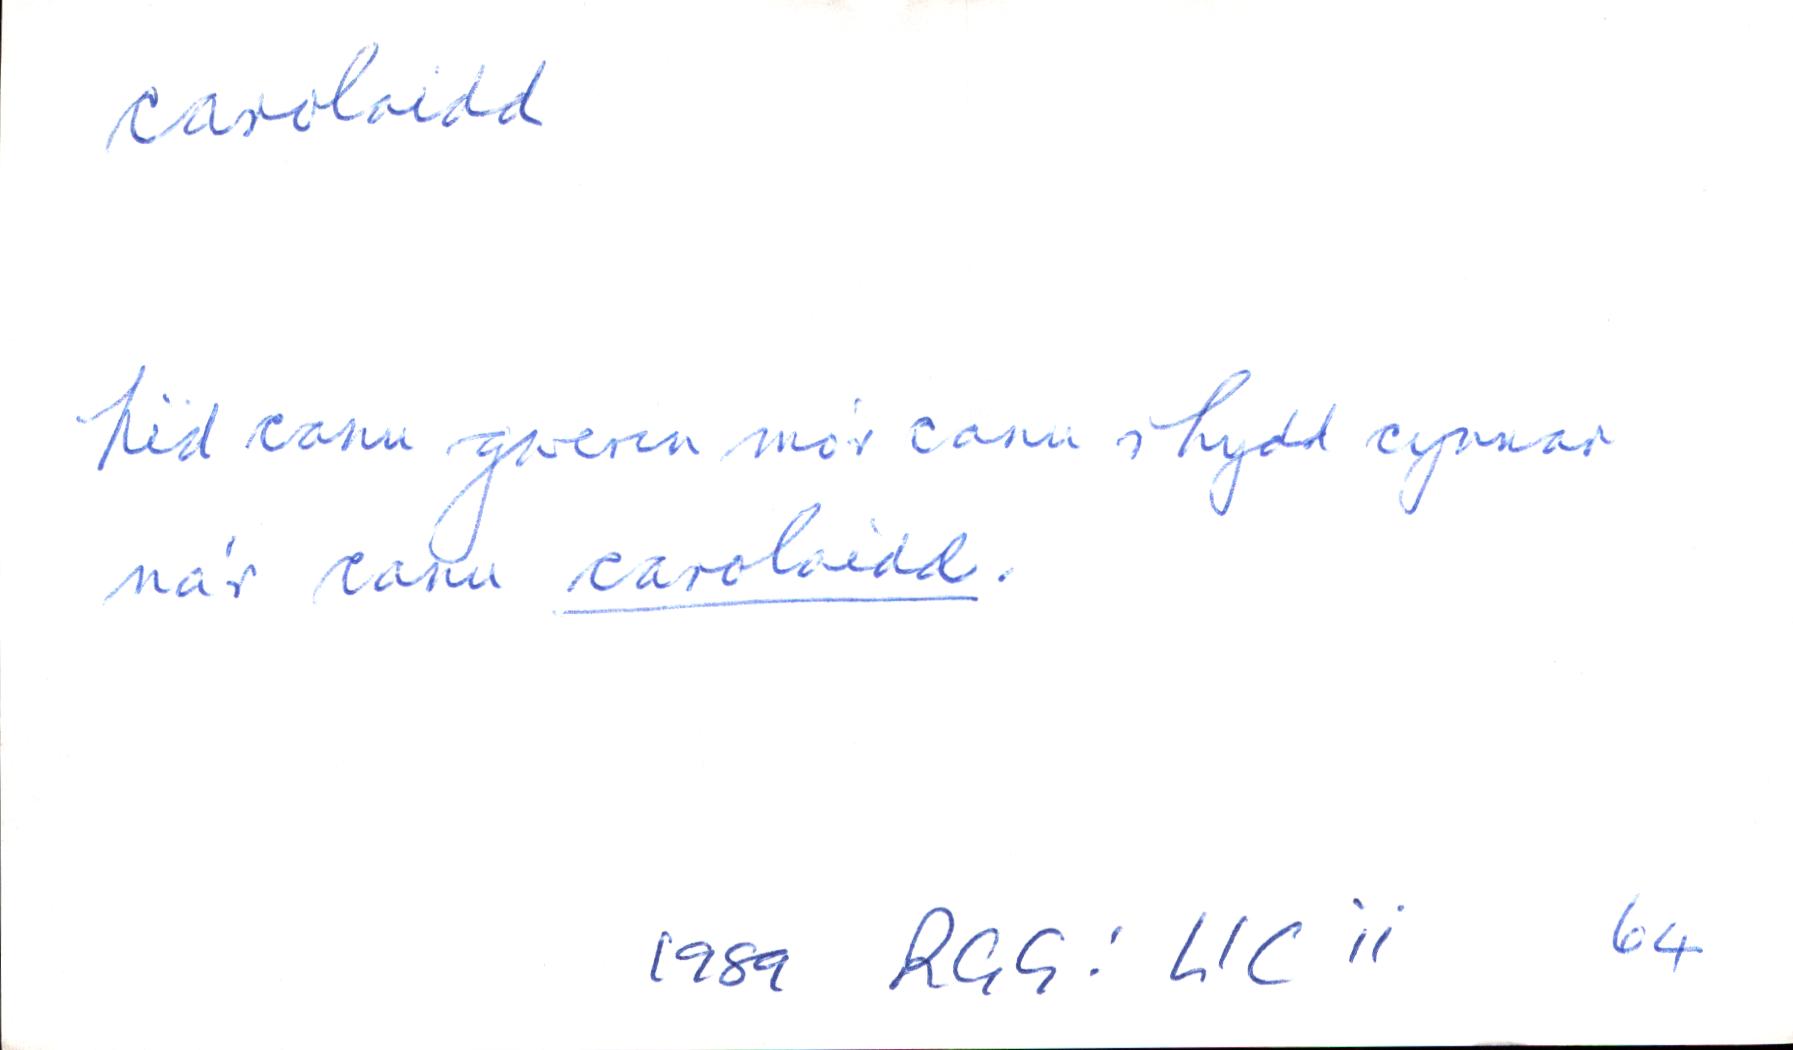 caroloidd
Nid canu gwerin mo'r canu rhydd cynnar
na'r canu carolaidd.
1989 RGG: LlC ii 64